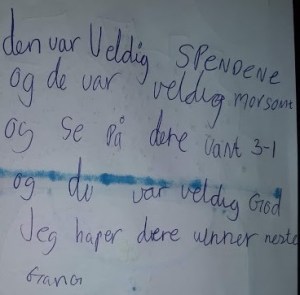 den var Veldig SPENDENE
og de var veldig morsomt
og se på dere vant 3-1
og du var veldig God
Jeg håper dere vinner neste
Gang